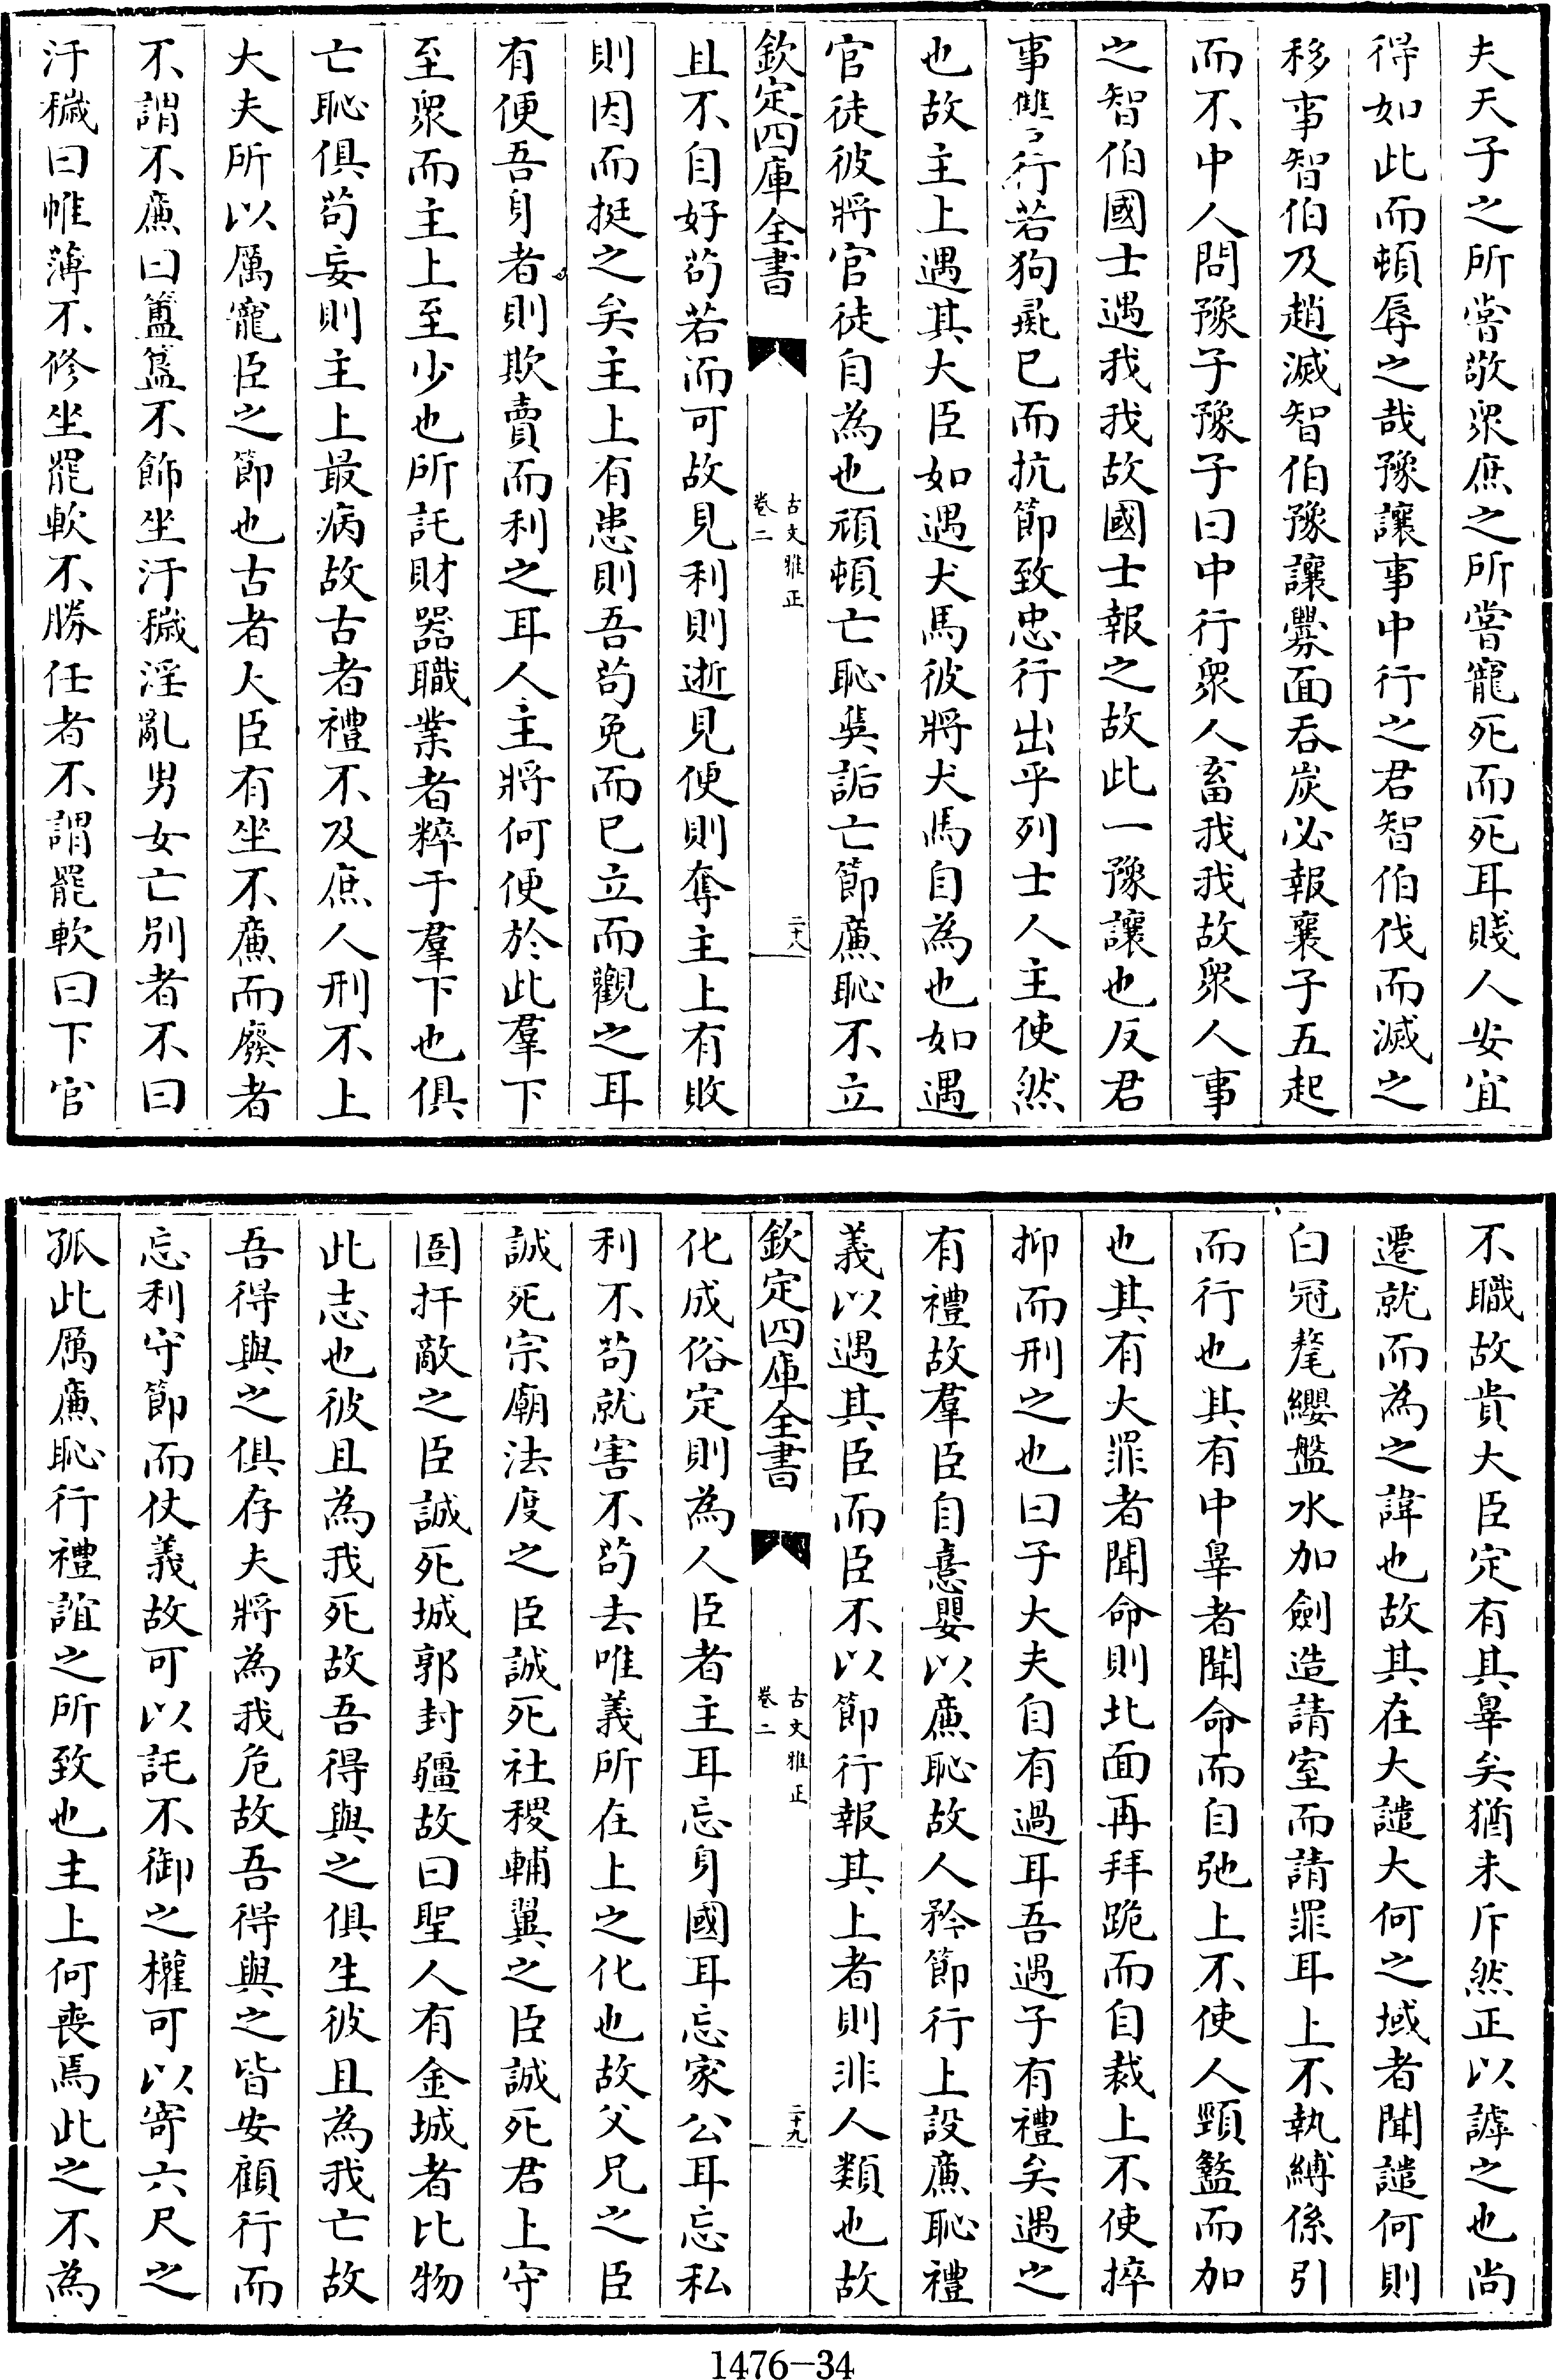 夫天子之所嘗敬衆庶之所嘗寵死而死耳賤人安宜
得如此而頓辱之哉豫讓事中行之君智伯伐而滅之
移事智伯及趙滅智伯豫讓釁面吞炭必報襄子五起
而不中人問豫子豫子曰中行衆人畜我我故衆人事
之智伯國士遇我我故國士報之故此一豫讓也反君
事讎行若狗彘已而抗節致忠行出乎列士人主使然
也故主上遇其大臣如遇犬馬彼將犬馬自為也如遇
官徒彼將官徒自為也頑頓亡恥奊詬亡節廉恥不立
欽定四庫全書
古文雅正
卷二
二十八
且不自好茍若而可故見利則逝見便則奪主上有敗
則因而挺之矣主上有患則吾茍免而已立而觀之耳
有便吾身者則欺賣而利之耳人主將何便於此羣下
至衆而主上至少也所託財器職業者粹于羣下也俱
亡恥俱茍妄則主上最病故古者禮不及庶人刑不上
大夫所以厲寵臣之節也古者大臣有坐不廉而廢者
不謂不廉曰簠簋不飾坐汙穢淫亂男女亡別者不曰
汙穢曰帷薄不修坐罷軟不勝任者不謂罷軟曰下官
不職故貴大臣定有其辠矣猶未斥然正以謼之也尚
遷就而為之諱也故其在大譴大何之域者聞譴何則
白冠氂纓盤水加劍造請室而請罪耳上不執縛係引
而行也其有中辠者聞命而自弛上不使人頸盭而加
也其有大罪者聞命則北面再拜跪而自裁上不使捽
抑而刑之也曰子大夫自有過耳吾遇子有禮矣遇之
有禮故羣臣自憙嬰以廉恥故人矜節行上設廉恥禮
義以遇其臣而臣不以節行報其上者則非人類也故
欽定四庫全書
古文雅正
卷二
二十九
化成俗定則為人臣者主耳忘身國耳忘家公耳忘私
利不茍就害不茍去唯義所在上之化也故父兄之臣
誠死宗廟法度之臣誠死社稷輔翼之臣誠死君上守
圄扞敵之臣誠死城郭封疆故曰聖人有金城者比物
此志也彼且為我死故吾得與之俱生彼且為我亡故
吾得與之俱存夫將為我危故吾得與之皆安顧行而
忘利守節而仗義故可以託不御之權可以寄六尺之
孤此厲廉恥行禮誼之所致也主上何喪焉此之不為
1476-34